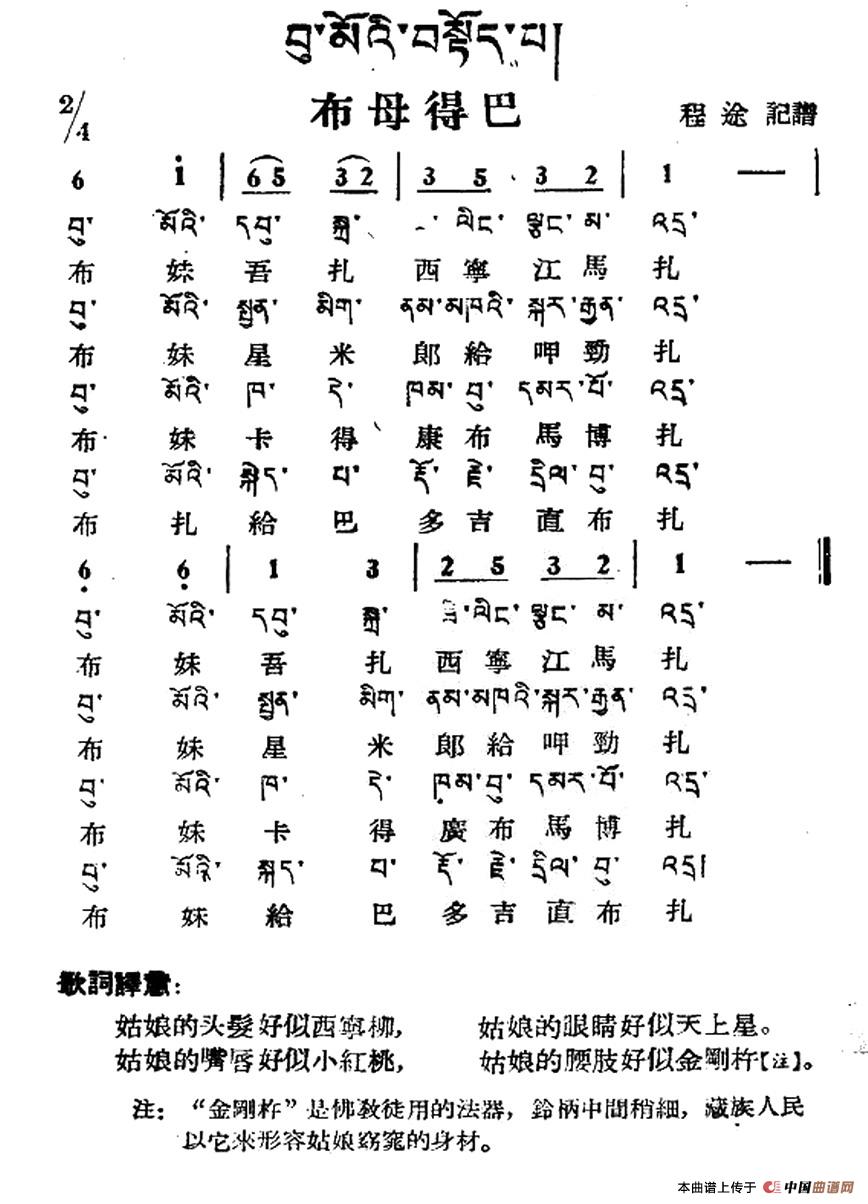 བུ་མོའི་བསྟོད་པ།
布母得巴
2/4
程途 記譜
6 i | 6 5 3 2 | 3 5 3 2 | 1 — |
བུ་ མོའི་ དབུ་ སྐྲ་ ལིང་ ལྕང་ མ་ འདྲ་
布 妹 吾 扎 西 寧 江 馬 扎
བུ་ མོའི་ སྤྱན་ མིག་ ནམ་མཁའི་ སྐར་རྒྱན་ འདྲ་
布 妹 星 米 郎 給 呷 勁 扎
བུ་ མོའི་ ཁ་ དེ་ ཁམ་བུ་ དམར་པོ་ འདྲ་
布 妹 卡 得 康 布 馬 博 扎
བུ་ མོའི་ སྐེད་ པ་ རྡོ་ རྗེ་ དྲིལ་ བུ་ འདྲ་
布 扎 給 巴 多 吉 直 布 扎
6 6 | 1 3 | 2 5 3 2 | 1 — ‖
བུ་ མོའི་ དབུ་ སྐྲ་ ལིང་ ལྕང་ མ་ འདྲ་
布 妹 吾 扎 西 寧 江 馬 扎
བུ་ མོའི་ སྤྱན་ མིག་ ནམ་མཁའི་སྐར་རྒྱན་ འདྲ་
布 妹 星 米 郎 給 呷 勁 扎
བུ་ མོའི་ ཁ་ དེ་ ཁམ་བུ་ དམར་པོ་ འདྲ་
布 妹 卡 得 廣 布 馬 博 扎
བུ་ མོའི་ སྐད་ པ་ རྡོ་ རྗེ་ དྲིལ་ བུ་ འདྲ།
布 妹 給 巴 多 吉 直 布 扎
歌詞譯意：
姑娘的头髮好似西寧柳， 姑娘的眼睛好似天上星。
姑娘的嘴唇好似小紅桃， 姑娘的腰肢好似金剛杵【注】。
注：“金剛杵”是佛敎徒用的法器，鈴柄中間稍細，藏族人民
以它来形容姑娘窈窕的身材。
本曲谱上传于 中国曲谱网